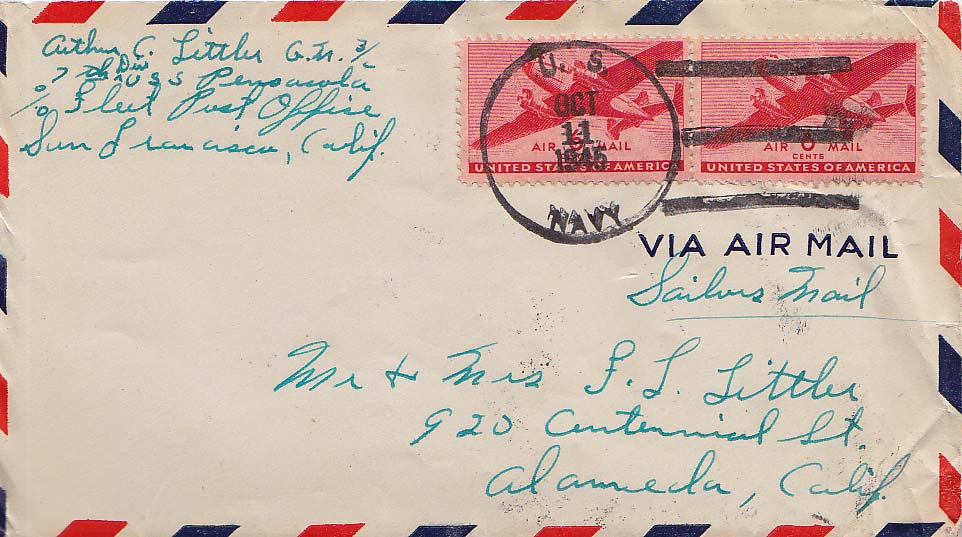 Arthur C. Littler G.M. 3/c
7th Div U S S Pensacola
℅ Fleet Post Office
San Francisco, Calif.
U. S.
OCT
11
1945
NAVY
AIR 6 MAIL
UNITED STATES OF AMERICA
AIR 6 MAIL
CENTS
UNITED STATES OF AMERICA
VIA AIR MAIL
Sailors Mail
Mr & Mrs F. L. Littler
920 Centennial St.
Alameda, Calif.